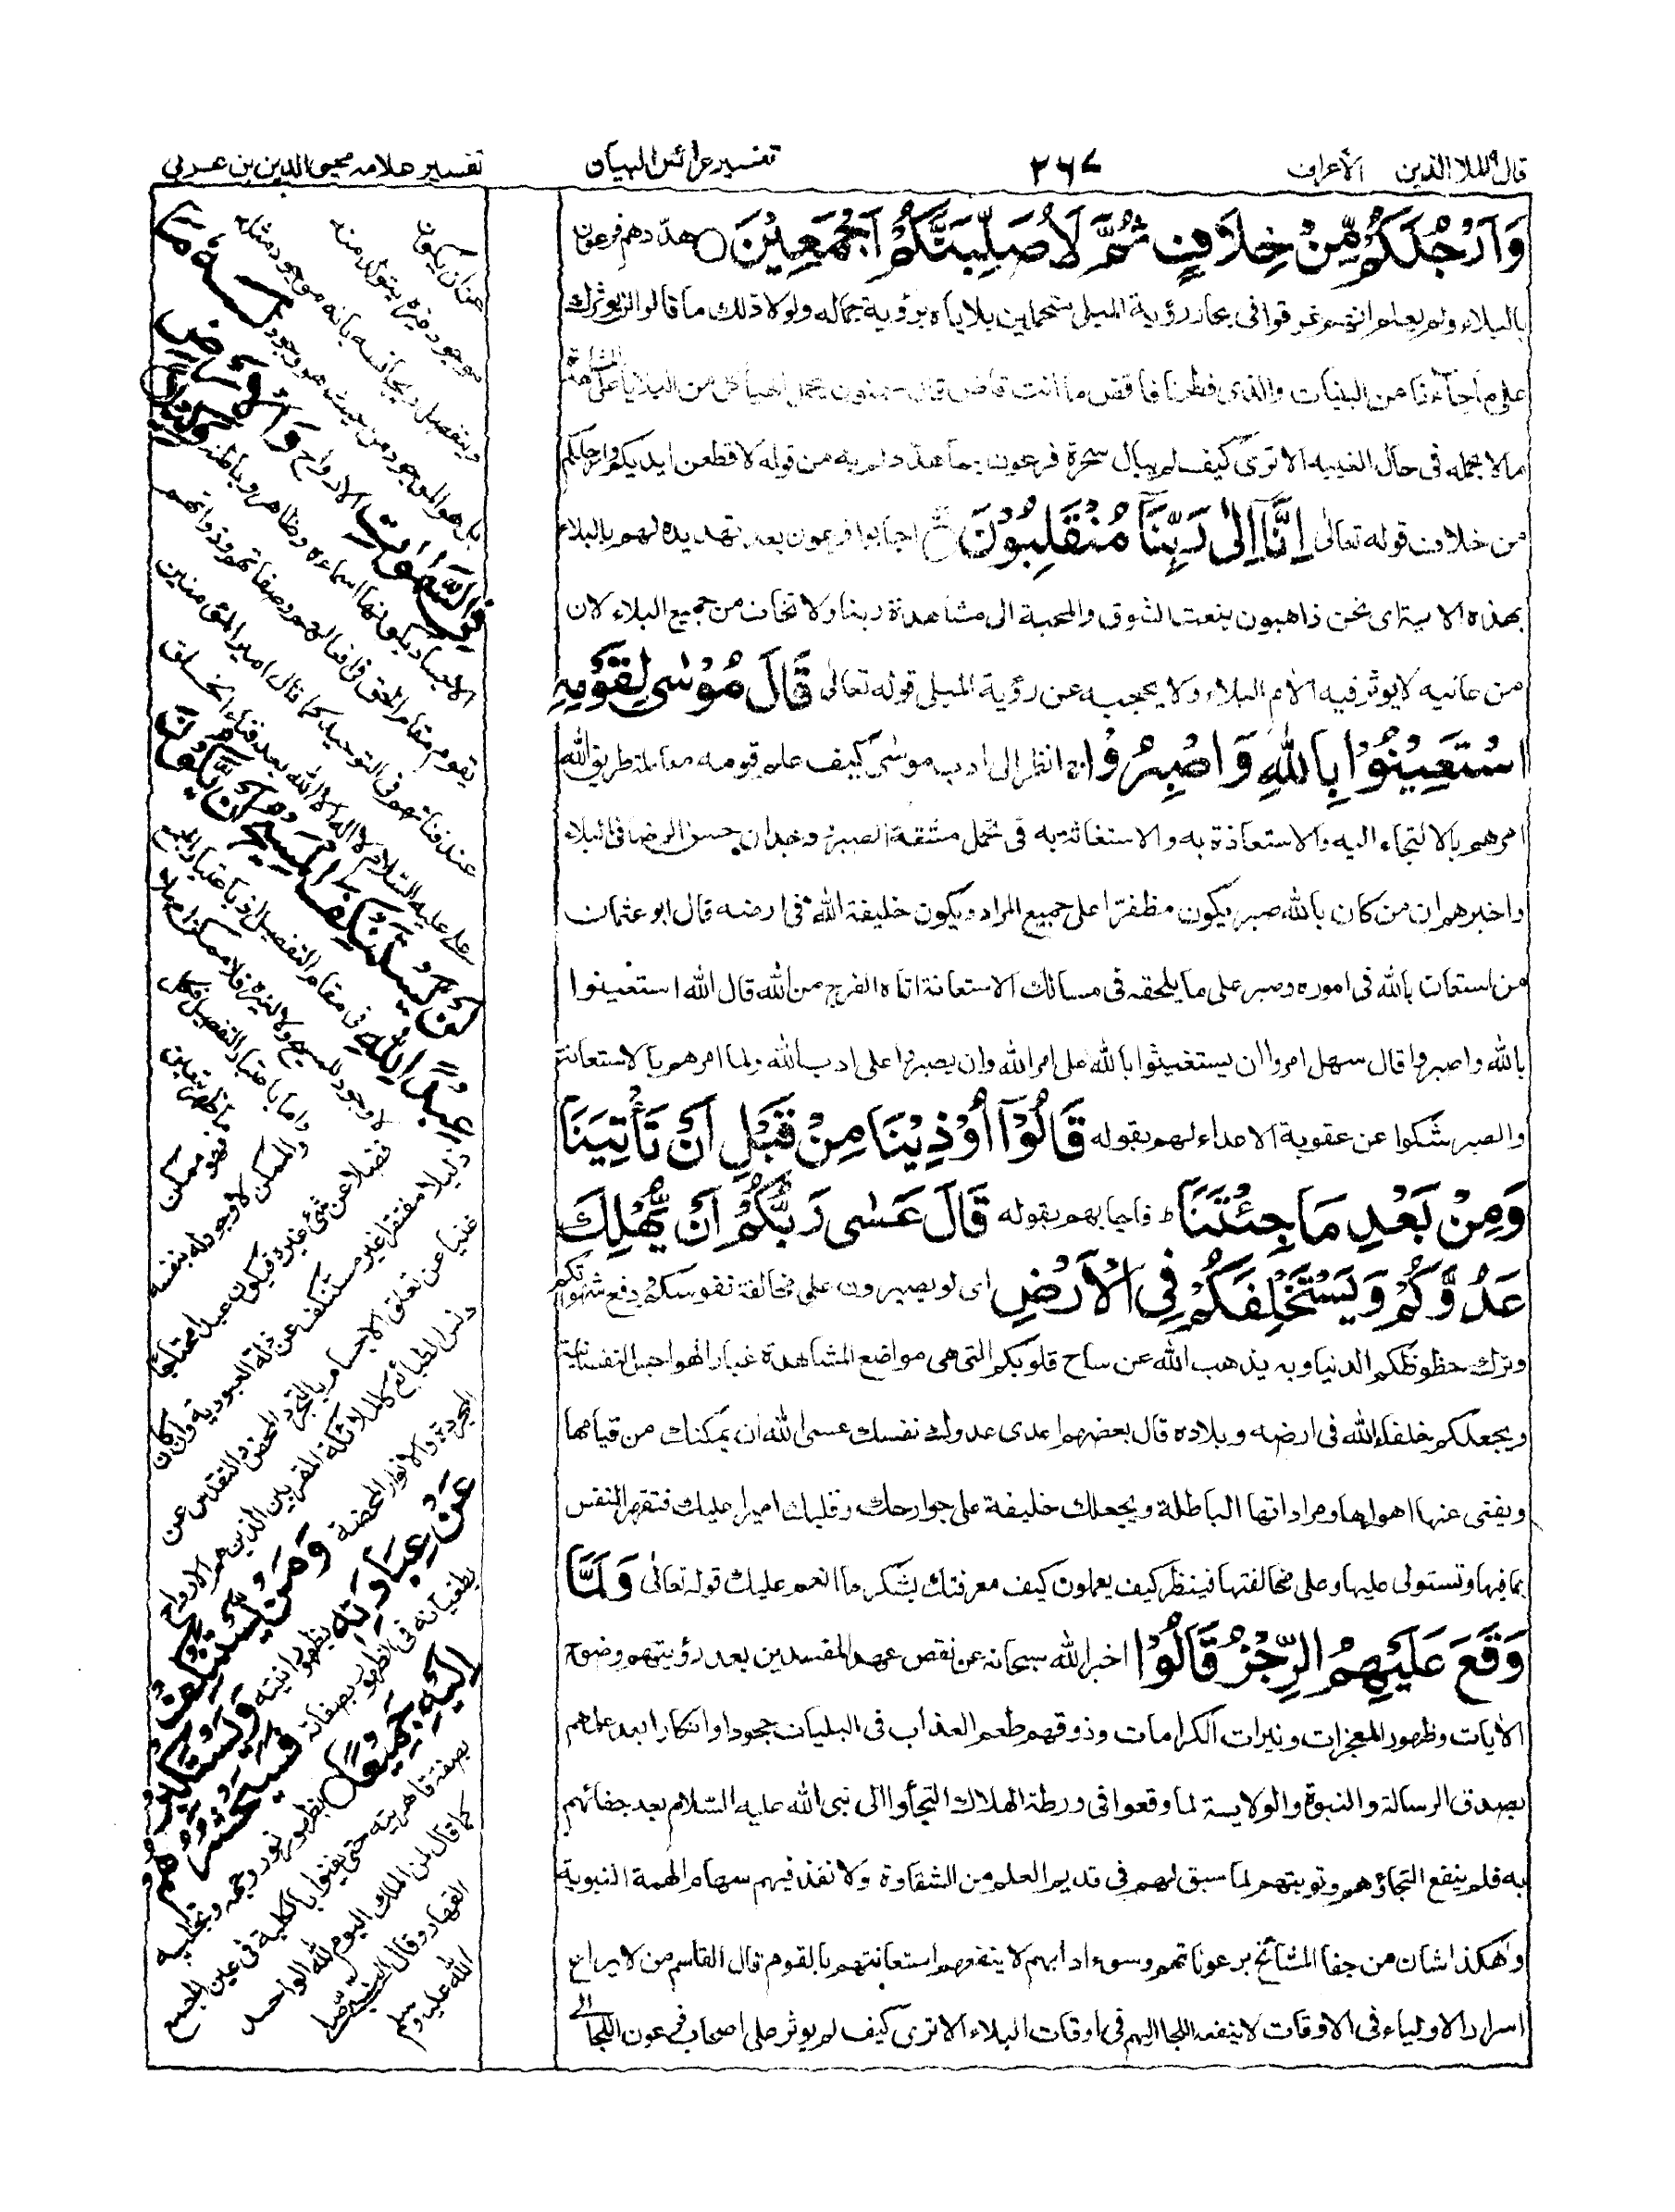 قال الملا الذين الأعراف ٢٦٧ تفسير عرائس البيان تفسير علامه محيى الدين بن عربى
وَاَرْجُلَكُمْ مِّنْ خِلَافٍ ثُمَّ لَاُصَلِّبَنَّكُمْ اَجْمَعِيْنَ هددهم فرعون
بالبلاء ولم يعلم انهم غرقوا فى بحار رؤية المبلى متحملين بلاياه برؤية جماله ولولا ذلك ما قالوا لن نوثرك
على ما جاءنا من البينات والذى فطرنا فاقض ما انت قاض قال يحمل من البلايا على المشاهدة
مالا يحمله فى حال الغيبة الا ترى كيف لم يبال سحرة فرعون بما هددهم به من قوله لاقطعن ايديكم وارجلكم
من خلاف قوله تعالى اِنَّا اِلٰى رَبِّنَا مُنْقَلِبُوْنَ اجابوا فرعون بعد تهديده لهم بالبلاء
بهذه الاية اى نحن ذاهبون بنعت الشوق والمحبة الى مشاهدة ربنا ولا نخاف من جميع البلاء لان
من عاينه لا يوثر فيه الام البلاء ولا يحجبه عن رؤية المبلى قوله تعالى قَالَ مُوْسٰى لِقَوْمِهِ
اسْتَعِيْنُوْا بِاللّٰهِ وَاصْبِرُوْا انظر الى ادب موسى كيف علم قومه معاملة طريق الله
امرهم بالالتجاء اليه والاستعاذة به والاستغاثة به فى تحمل مشقة الصبر وجدان حسن الرضا فى البلاء
واخبرهم ان من كان بالله صبر يكون مظفرا على جميع المراد ويكون خليفة الله فى ارضه قال ابو عثمان
من استعان بالله فى اموره وصبر على ما يلحقه فى مسالك الاستعانة اتاه الفرج من الله قال الله استعينوا
بالله واصبروا قال سهل امروا ان يستغيثوا بالله على امر الله وان يصبروا على ادب الله ولما امرهم بالاستعانة
والصبر شكوا عن عقوبة الاعداء لهم بقوله قَالُوْٓا اُوْذِيْنَا مِنْ قَبْلِ اَنْ تَأْتِيَنَا
وَمِنْ بَعْدِ مَا جِئْتَنَا ط فاجابهم بقوله قَالَ عَسٰى رَبُّكُمْ اَنْ يُّهْلِكَ
عَدُوَّكُمْ وَيَسْتَخْلِفَكُمْ فِى الْاَرْضِ اى لو تصبرون على مخالفة نفوسكم بدفع شهواتكم
وترك حظوظكم الدنياوية يذهب الله عن ساح قلوبكم التى هى مواضع المشاهدة غبار الهواجس النفسانية
ويجعلكم خلفاء الله فى ارضه وبلاده قال بعضهم اعدى عدوك نفسك عسى الله ان يمكنك من قيامها
ويفنى عنها اهواءها ومراداتها الباطلة ويجعلك خليفة على جوارحك وقلبك اميرا عليك فتقهر النفس
بما فيها وتستولى عليها وعلى مخالفتها فينظر كيف يعملون كيف معرفتك بشكر ما انعم عليك قوله تعالى وَلَمَّا
وَقَعَ عَلَيْهِمُ الرِّجْزُ قَالُوْا اخبر الله سبحانه عن نقص عهد المفسدين بعد رؤيتهم وضوح
الآيات وظهور المعجزات ونيرات الكرامات وذوقهم طعم العذاب فى البليات جحودا وانكارا بعد علمهم
بصدق الرسالة والنبوة والولاية لما وقعوا فى ورطة الهلاك التجأوا الى نبى الله عليه السلام بعد جفائهم
به فلم ينفع التجاؤهم وتوبتهم لما سبق لهم فى قديم العلم من الشقاوة ولا نفذ فيهم سهام الهمة النبوية
وهكذا شان من جفا المشائخ برعوناتهم وسوء ادابهم لا ينفعهم استعانتهم بالقوم قال القاسم من لا يراع
اسرار الاولياء فى الاوقات لا ينفعه اللجا اليهم فى اوقات البلاء الا ترى كيف لم يوثر على اصحاب فرعون اللجا الى
عن ان يكون
موجود غيره يتولد منه
وينفصل ويجانسه بانه موجود مثله
بل هو الموجود من حيث هو وجود لَهُ مَا
فِى السَّمٰوٰتِ الارواح وَالْاَرْضِ
الاجساد بكونها اسماءه وظاهره وباطنه
تقوم مقام الحق فى افعالهم وصفاتهم وذواتهم
عند فنائهم فى التوحيد كما قال امير المؤمنين
على عليه السلام لا اله الا الله بعد فناء الخلق
لَنْ يَّسْتَنْكِفَ الْمَسِيْحُ اَنْ يَّكُوْنَ
عَبْدًا لِّلّٰهِ فى مقام التفصيل اذ باعتبار الجمع
لا وجود للمسيح ولا لغيره فلا ممكن اصلا
واما باعتبار التفصيل فكل
ما ظهر بتعين
فهو ممكن
والممكن لا وجود له بنفسه
فضلا عن شئ غيره فيكون عبدا محتاجا
ذليلا مفتقرا غير مستنكف عن ذلة العبودية وان كان
غنيا عن تعلق الاجسام بالتجرد المحض والتقدس عن
دنس الطبائع كالملائكة المقربين الذين هم الارواح
المجردة والانوار المحضة وَمَنْ يَّسْتَنْكِفْ
عَنْ عِبَادَتِهٖ بظهور انيته وَيَسْتَكْبِرْ
بطغيانه فى الظهور بصفاته فَسَيَحْشُرُهُمْ
اِلَيْهِ جَمِيْعًا بظهور نور وجهه وتجليه
بصفة قاهريته حتى يفنوا بالكلية فى عين الجمع
كما قال لمن الملك اليوم لله الواحد
القهار وقال النبى صلى
الله عليه وسلم